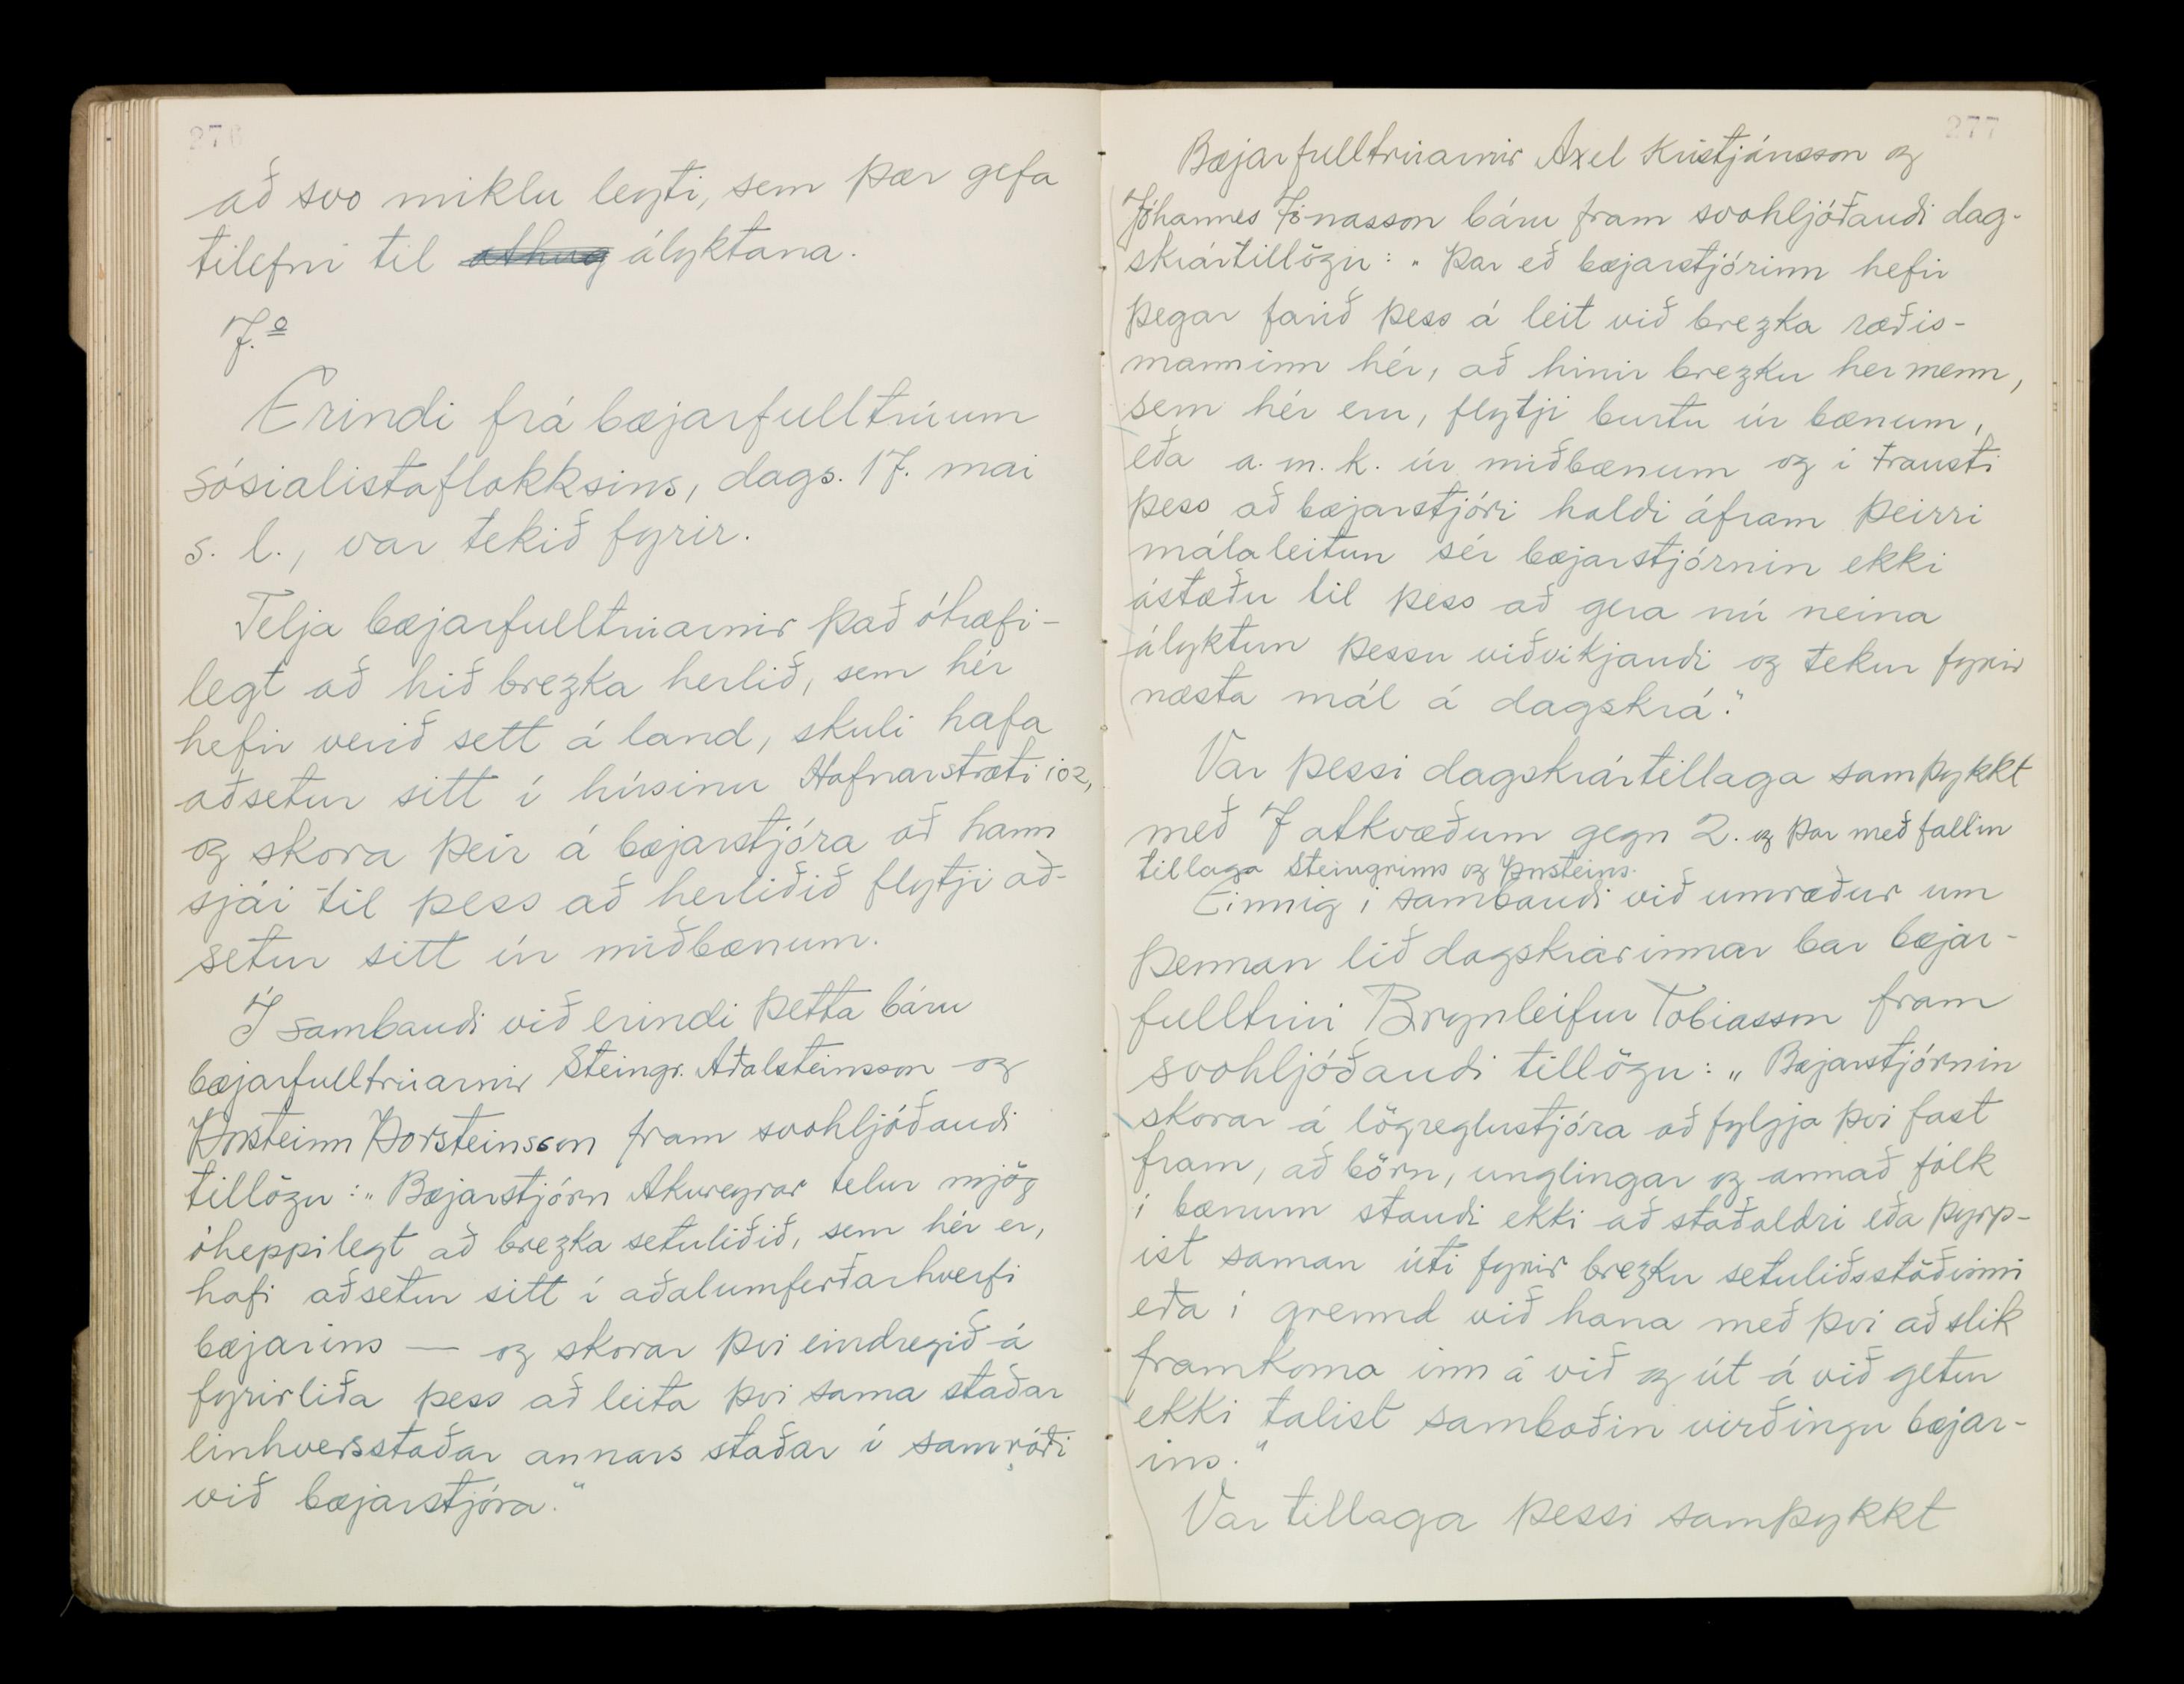 276
að svo miklu leyti, sem þær gefa
tilefni til athug ályktana.
7.o
Erindi frá bæjarfulltrúum
sósialistaflokksins, dags. 17. mai
s. l., var tekið fyrir.
Telja bæjarfulltrúarnir það óhæfi-
legt að hið brezka herlið, sem hér
hefir verið sett á land, skuli hafa
aðsetur sitt í húsinu Hafnarstræti 102,
og skora þeir á bæjarstjóra að hann
sjái til þess að herliðið flytji að-
setur sitt úr miðbænum.
Í sambandi við erindi þetta báru
bæjarfulltrúarnir Steingr. Aðalsteinsson og
Þorsteinn Þorsteinsson fram svohljóðandi
tillögu: „Bæjarstjórn Akureyrar telur mjög
óheppilegt að brezka setuliðið, sem hér er,
hafi aðsetur sitt í aðalumferðarhverfi
bæjarins — og skorar því eindregið á
fyrirliða þess að leita því sama staðar
einhversstaðar annars staðar í samráði
við bæjarstjóra.“
277
Bæjarfulltrúarnir Axel Kristjánsson og
Jóhannes Jónasson báru fram svohljóðandi dag-
skrártillögu: „Þar eð bæjarstjórinn hefir
þegar farið þess á leit við brezka ræðis-
manninn hér, að hinir brezku hermenn,
sem hér eru, flytji burtu úr bænum,
eða a. m. k. úr miðbænum og i trausti
þess að bæjarstjóri haldi áfram þeirri
málaleitun sér bæjarstjórnin ekki
ástæðu til þess að gera nú neina
ályktun þessu viðvikjandi og tekur fyrir
næsta mál á dagskrá.“
Var þessi dagskrártillaga samþykkt
með 7 atkvæðum gegn 2. og þar með fallin
tillaga Steingrims og Þorsteins.
Einnig i sambandi við umræður um
þennan lið dagskrárinnar bar bæjar-
fulltrúi Brynleifur Tobiasson fram
svohljóðandi tillögu: „Bæjarstjórnin
skorar á lögreglustjóra að fylgja því fast
fram, að börn, unglingar og annað fólk
i bænum standi ekki að staðaldri eða þyrp-
ist saman úti fyrir brezku setuliðsstöðinni
eða i grennd við hana með því að slik
framkoma inn á við og út á við getur
ekki talist samboðin virðingu bæjar-
ins.“
Var tillaga þessi samþykkt